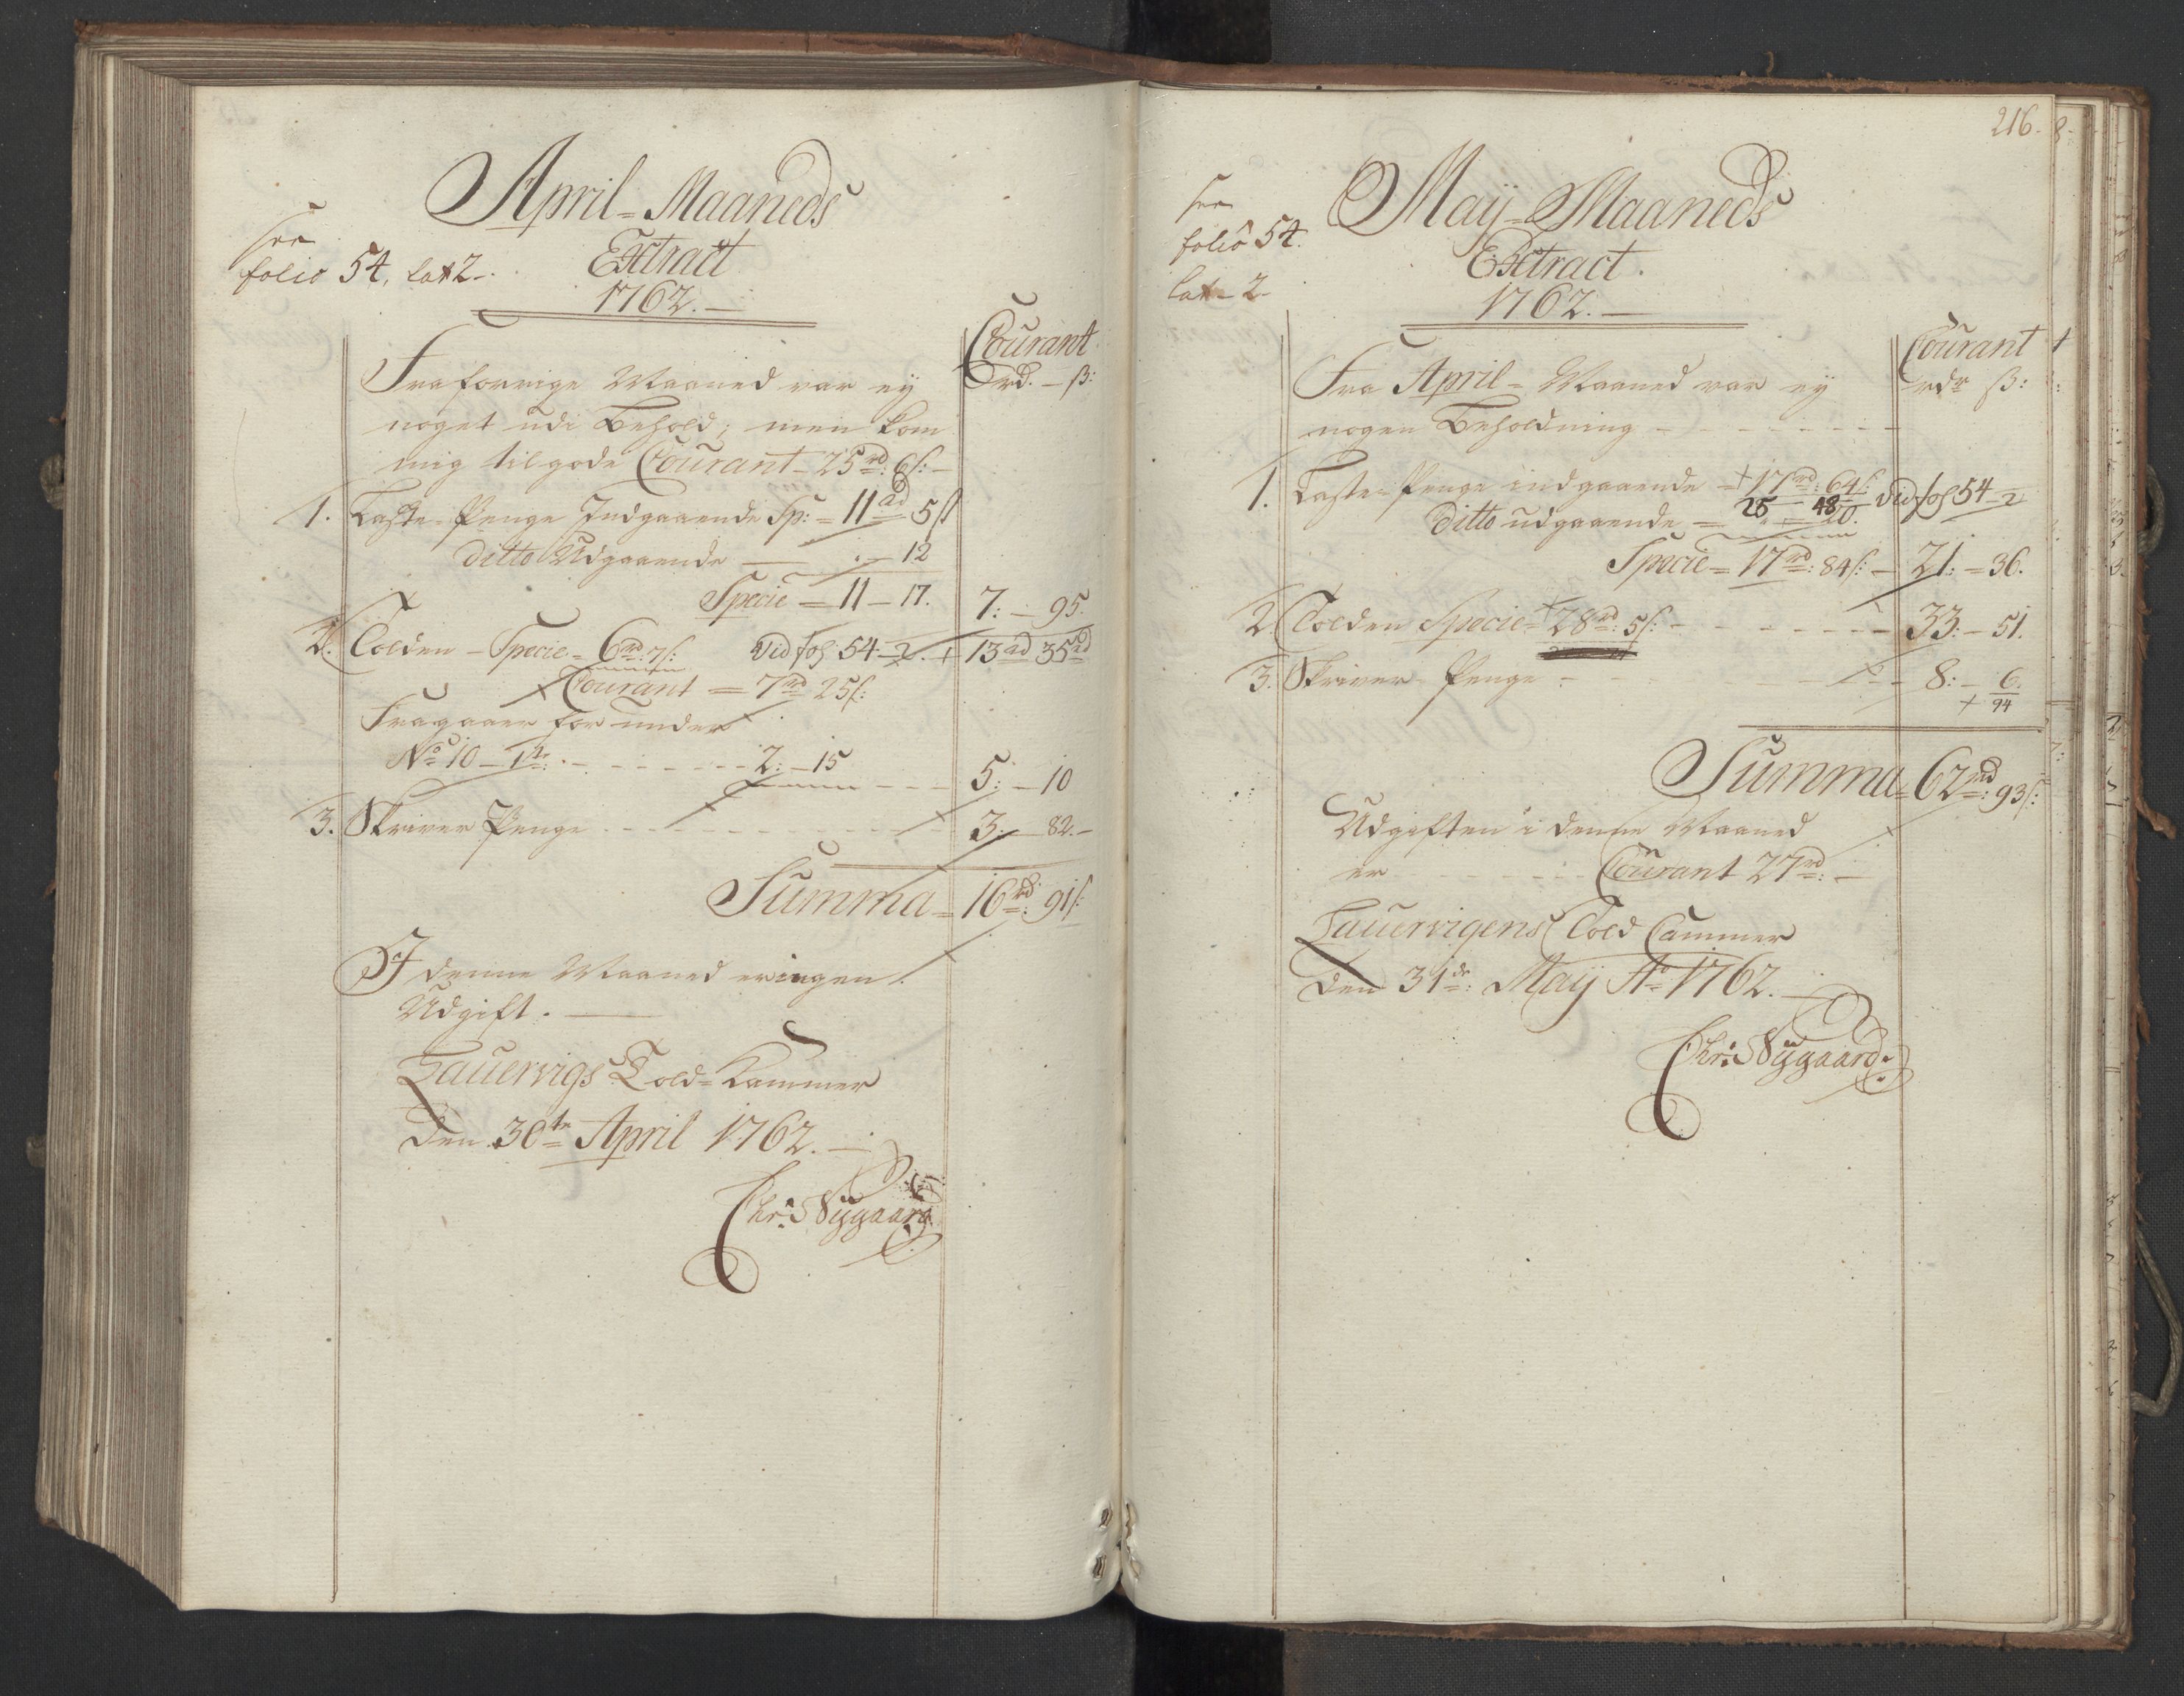 April = Maaneds
see
folio 54, lat 2.
Extract
1762.
Courant
rd. - ß:
Fra forrige Maaned var ey
noget udi Behold; men kom
mig tilgode Courant 25 rd: 6 s:
1. Laste-Penge Indgaaende Sp: = 11 rd 5 s
ditto Udgaaende — . - 12
Specie = 11 - 17. 7: - 95.
2. Tolden - Specie = 6 rd: 7 s: Vid fol 54-2. + 13 rd 35
Courant = 7 rd 25 s:
Fragaaer for under
No 10 - 2: - 15 5: - 10
3. Skriver Penge 3: - 82. -
Summa = 16 rd: 91 s:
I denne Maaned er ingen
Udgift. —
Lauervigs Told = Kammer
Den 30te April 1762. —
Chr: Nygaard
216.
May = Maaneds
see
folio 54.
lat - 2
Extract.
1762. —
Courant
rdr ß:
Fra April = Maaned var ey
nogen Beholdning - - -
1. Laste = Penge indgaaende = + 17 rd: 64 s:
25 48 Vid fol 54-2
Ditto udgaaende = " - 20.
Specie = 17 rd: 84 s: - 21: = 36.
2. Tolden Specie = 28 rd: 5 s: - - - 33: - 51.
3. Skriver Penge - - - 8: - 6.
+ 94
Summa = 62 rd: 93 s:
Udgiften i denne Maaned
er - - - Courant 27 rd: -
Lauervigens Told Cammer
Den 31 de: May Ao 1762. —
Chr: Nygaard.